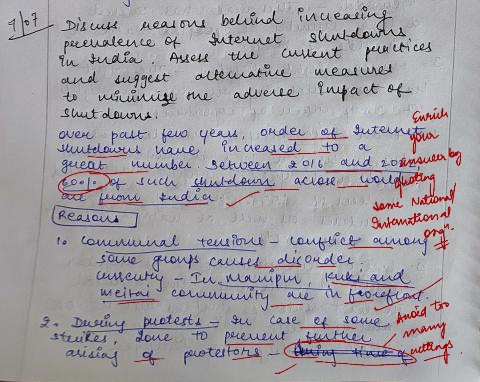 7/07
Discuss reasons behind increasing
prevalence of Internet Shutdowns
in India. Assess the current practices
and suggest alternative measures
to minimise the adverse impact of
shutdowns.
over past few years, order of Internet
shutdowns have increased to a
great number. Between 2016 and
60% of such shutdown across world
are from India
Enrich
your
answer by
quoting
some National
International
orgn.
Reasons
1. Communal tensions - conflict among
some groups causes disorder.
currently - In Manipur, Kuki and
meitai community are in forefront.
2. During protests - In case of some
strikes, done to prevent further
arising of protestors -
Avoid too
many
cuttings.